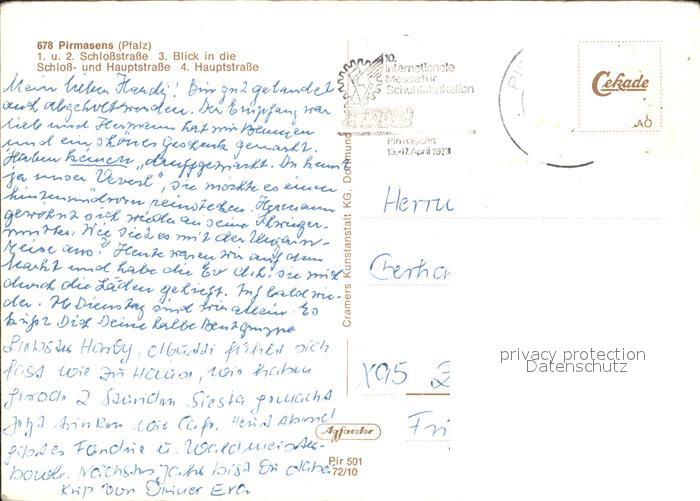 678 Pirmasens (Pfalz)
1. u. 2. Schloßstraße 3. Blick in die
Schloß- und Hauptstraße 4. Hauptstraße
Mein lieber Hardy! Bin gut gelandet
auch abgeholt worden. Der Empfang war
liebe und Hermann hat mir Blumen
und ein schönes Geschenk gemacht.
Haben keinen
ja unser Veverl", sie möchte es einem
hinten und vorn reinstecken. Hermann
gewöhnt sich wieder an seine Schwieger-
mutter. Wie sieht es mit der Ungarn-
Reise aus? Heute waren wir auf dem
Markt und habe die Eva
durch die Läden gehetzt. Auf bald wie-
der. Ab Dienstag sind wir allein. Es
küßt Dich Deine halbe
Liebster Hardy, fühlt sich
fast wie zu Hause, wir haben
gerade 2 Stunden Siesta gemacht
jetzt trinken wir Cafe. Heut Abend
gibt es Fondue u. Waldmeister-
bowle. Nächstes Jahr bist Du dabei
Kuß von Deiner Eva
10.
Internationale
Messe für
Schuhfabrikation
Pirmasens
13.-17. April 1973
Cekade
AÖ
Cramers Kunstanstalt KG, Dortmund
Herrn
Gerha
X95 Z
Fri
privacy protection
Datenschutz
Agfacolor
Pir 501
72/10